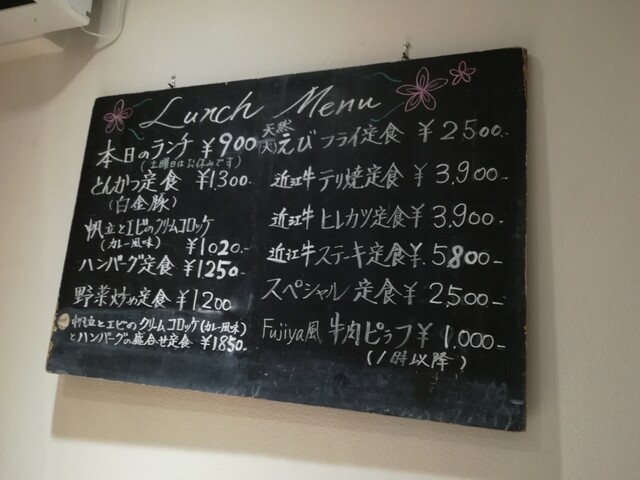 Lunch Menu
本日のランチ ¥900
(土曜日はお休みです)
とんかつ定食 ¥1300-
(白金豚)
帆立とエビのクリムコロッケ
(カレー風味)
¥1020-
ハンバーグ定食 ¥1250-
野菜炒め定食 ¥1200
帆立とエビのクリムコロッケ(カレー風味)
とハンバーグの盛合せ定食 ¥1850-
天然
(大)えびフライ定食 ¥2500-
近江牛テリ焼定食 ¥3,900-
近江牛ヒレカツ定食 ¥3,900-
近江牛ステーキ定食 ¥5800-
スペシャル定食 ¥2,500-
Fujiya風 牛肉ピラフ ¥1,000-
(1時以降)